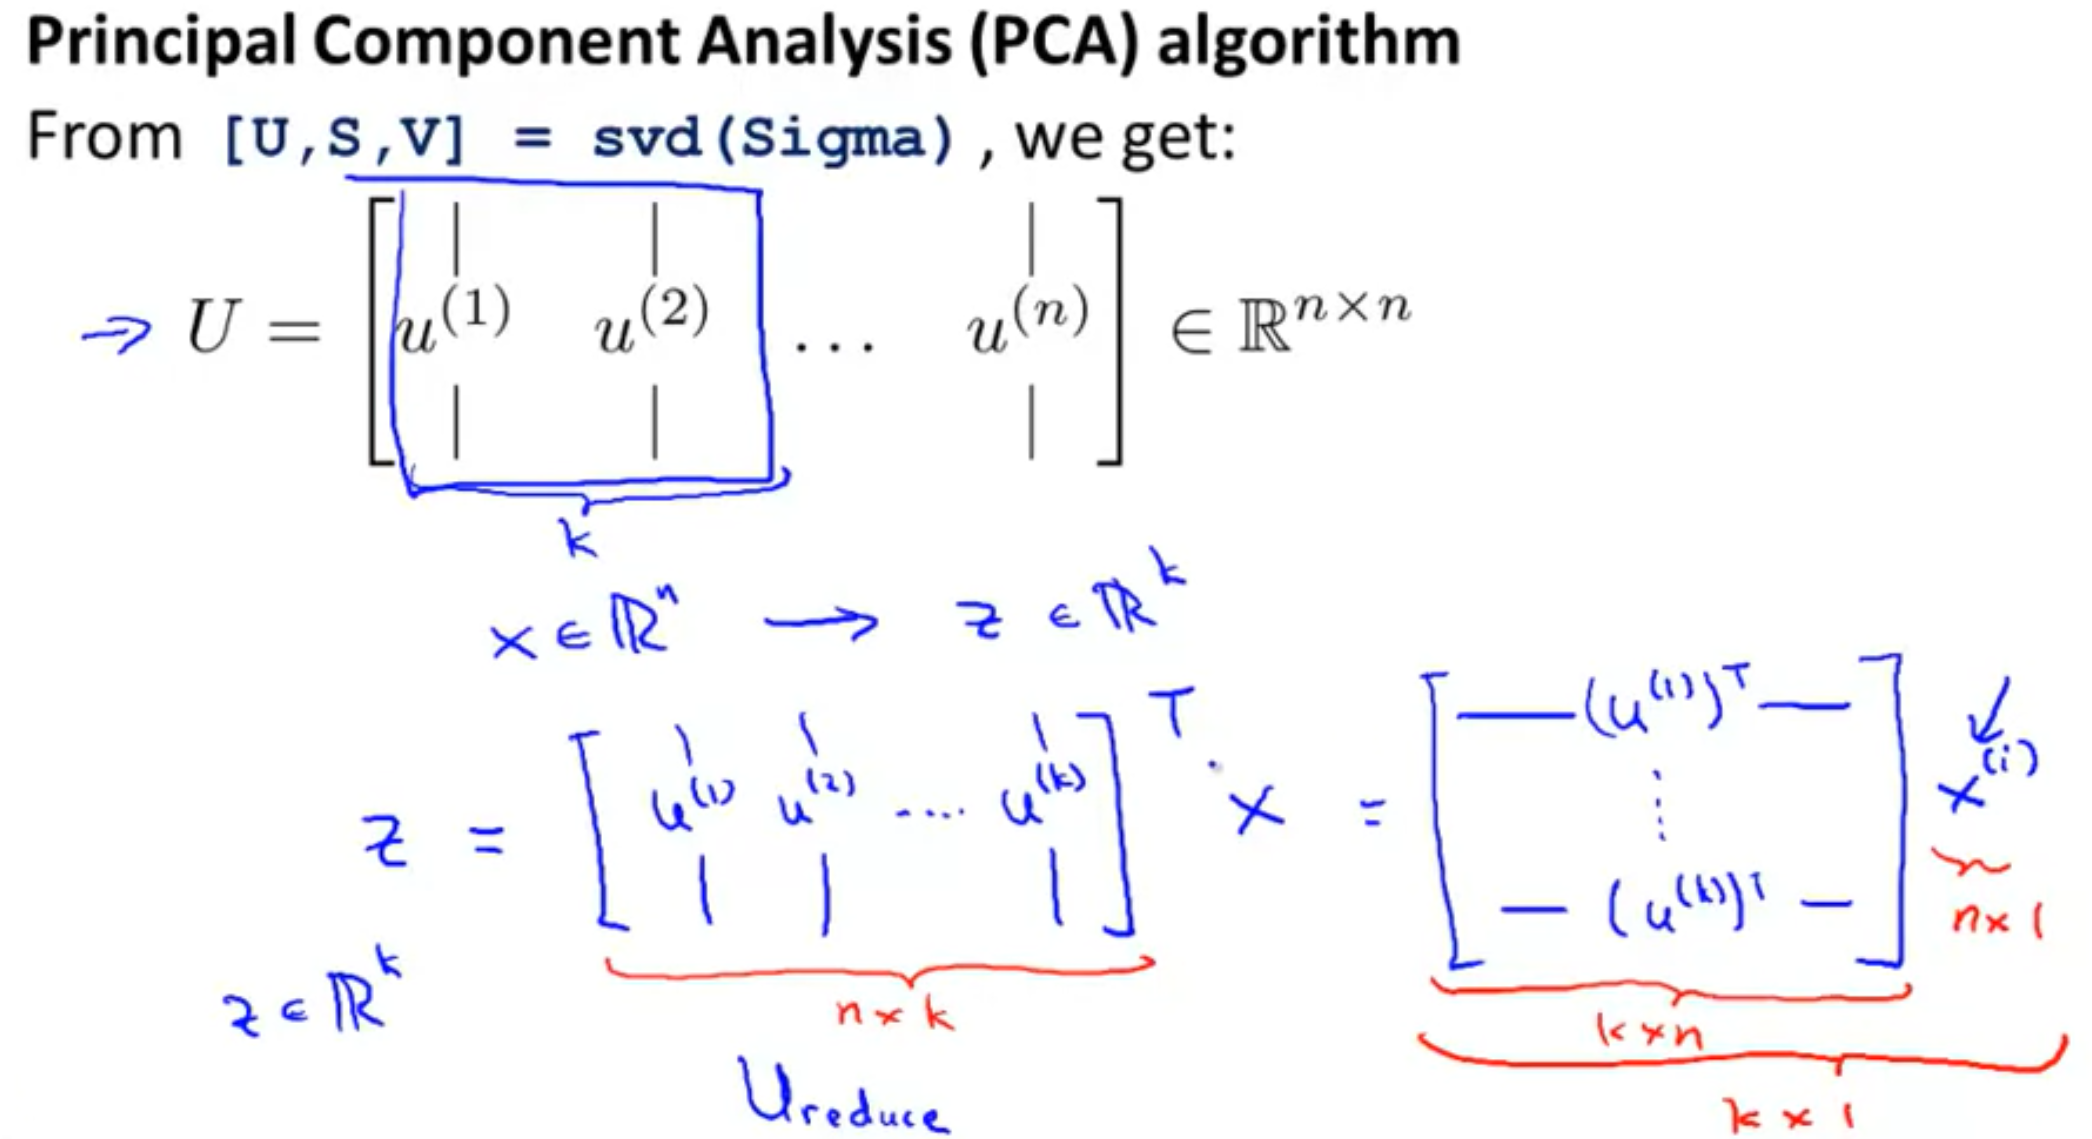 Principal Component Analysis (PCA) algorithm
From [U,S,V] = svd(Sigma) , we get:
⇒ U = [ u^(1) u^(2) ... u^(n) ] ∈ ℝ^{n×n}
k
x ∈ ℝ^n → z ∈ ℝ^k
z = [ u^(1) u^(2) .... u^(k) ]^T · x = [ — (u^(1))^T — ⋮ — (u^(k))^T — ] x^(i)
n × 1
z ∈ ℝ^k
n × k
k × n
U_reduce
k × 1